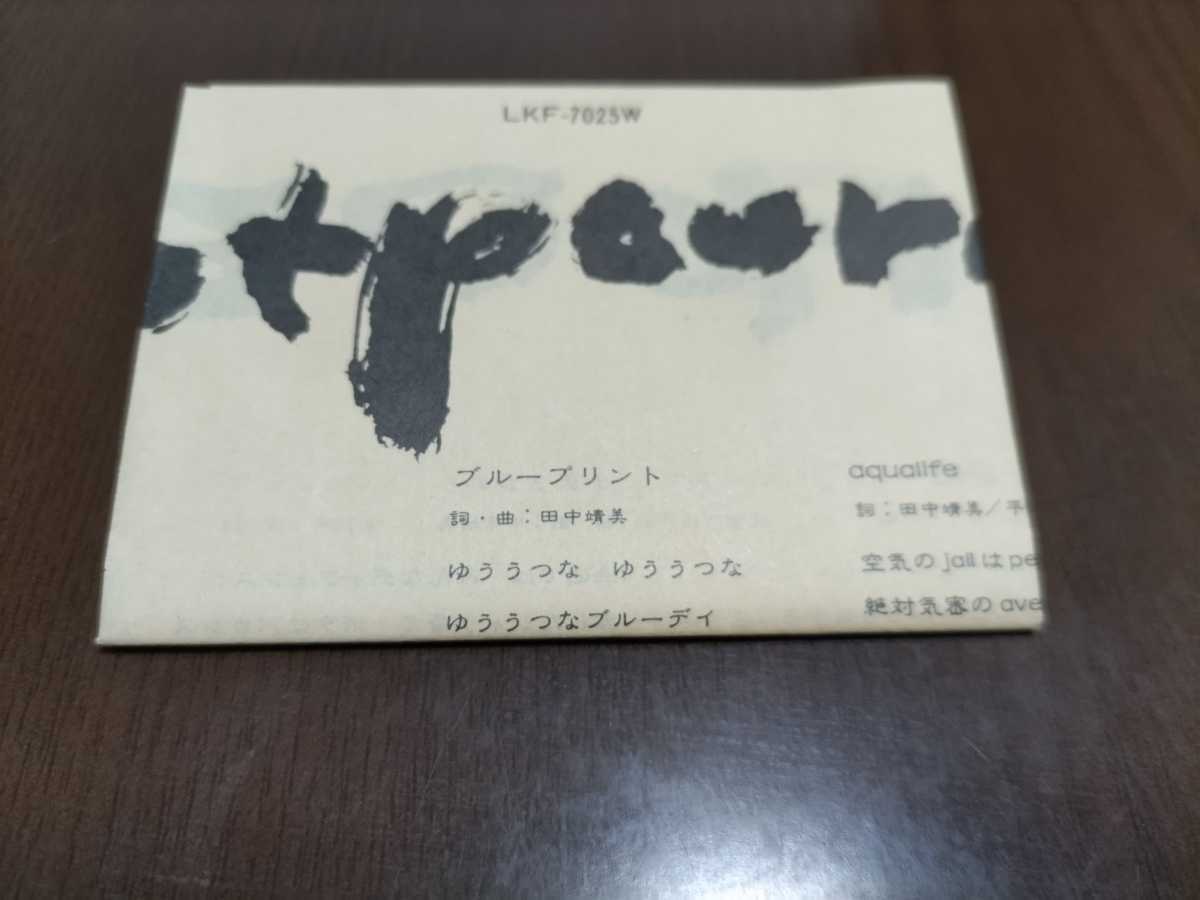 LKF-7025W
tpaur
ブループリント
詞・曲:田中靖美
ゆううつな ゆううつな
ゆううつなブルーデイ
aqualife
詞:田中靖美/平
空気のjailはpe
絶対気密のave